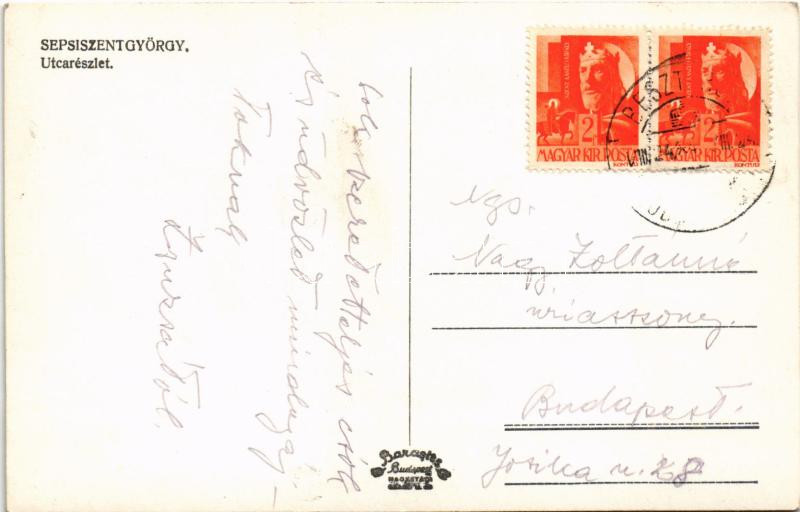 SEPSISZENTGYÖRGY.
Utcarészlet.
Sok szeretetteljes csók
és üdvözlet mindnyáj-
Toknak
Zsuzsától.
MAGYAR KIR. POSTA
MAGYAR KIR. POSTA
2
2
Ngs.
Nagy Zoltánné
úriasszony.
Budapest.
Jósika u. 28
Barasits
Budapest